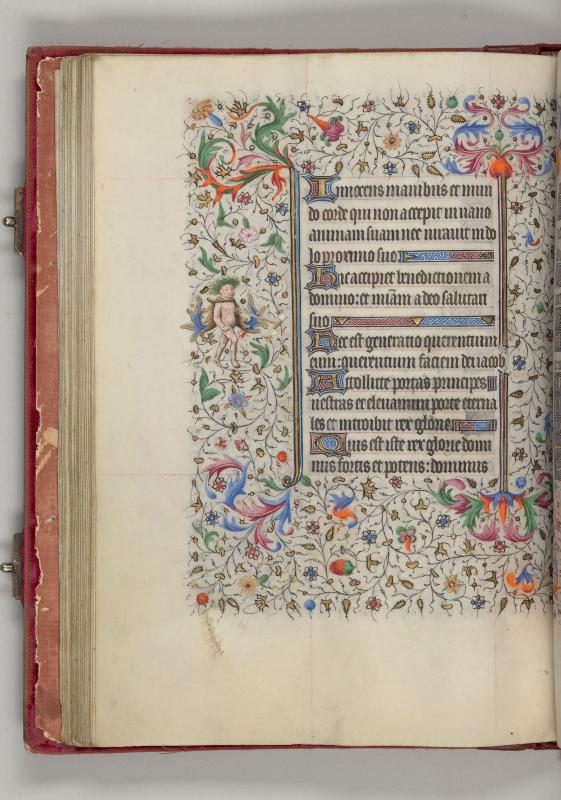 Innocens manibus et mun
do corde qui non accepit in vano
animam suam nec iuravit in do
lo proximo suo
Hic accipiet benedictionem a
domino: et miam a deo salutari
suo
Hec est generatio querentium
eum: querentium faciem dei iacob
Attollite portas principes
vestras et elevamini porte eterna
les et introibit rex glorie
Quis est iste rex glorie domi
nus fortis et potens: dominus